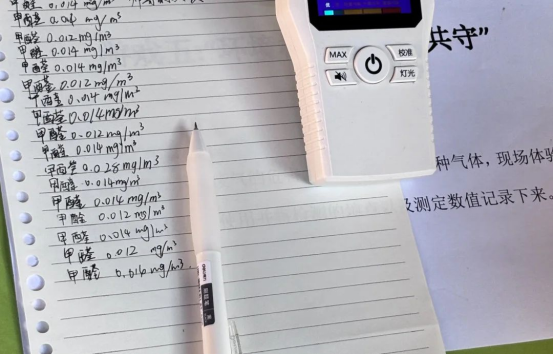 甲醛 0.014 mg/m³
甲醛 0.014 mg/m³
甲醛 0.012 mg/m³
甲醛 0.014 mg/m³
甲醛 0.014 mg/m³
甲醛 0.012 mg/m³
甲醛 0.014 mg/m³
甲醛 0.014 mg/m³
甲醛 0.012 mg/m³
甲醛 0.014 mg/m³
甲醛 0.028 mg/m³
甲醛 0.014 mg/m³
甲醛 0.014 mg/m³
甲醛 0.012 mg/m³
甲醛 0.014 mg/m³
甲醛 0.012 mg/m³
甲醛 0.010 mg/m³
MAX
校准
灯光
共守”
种气体，现场体验
及测定数值记录下来。